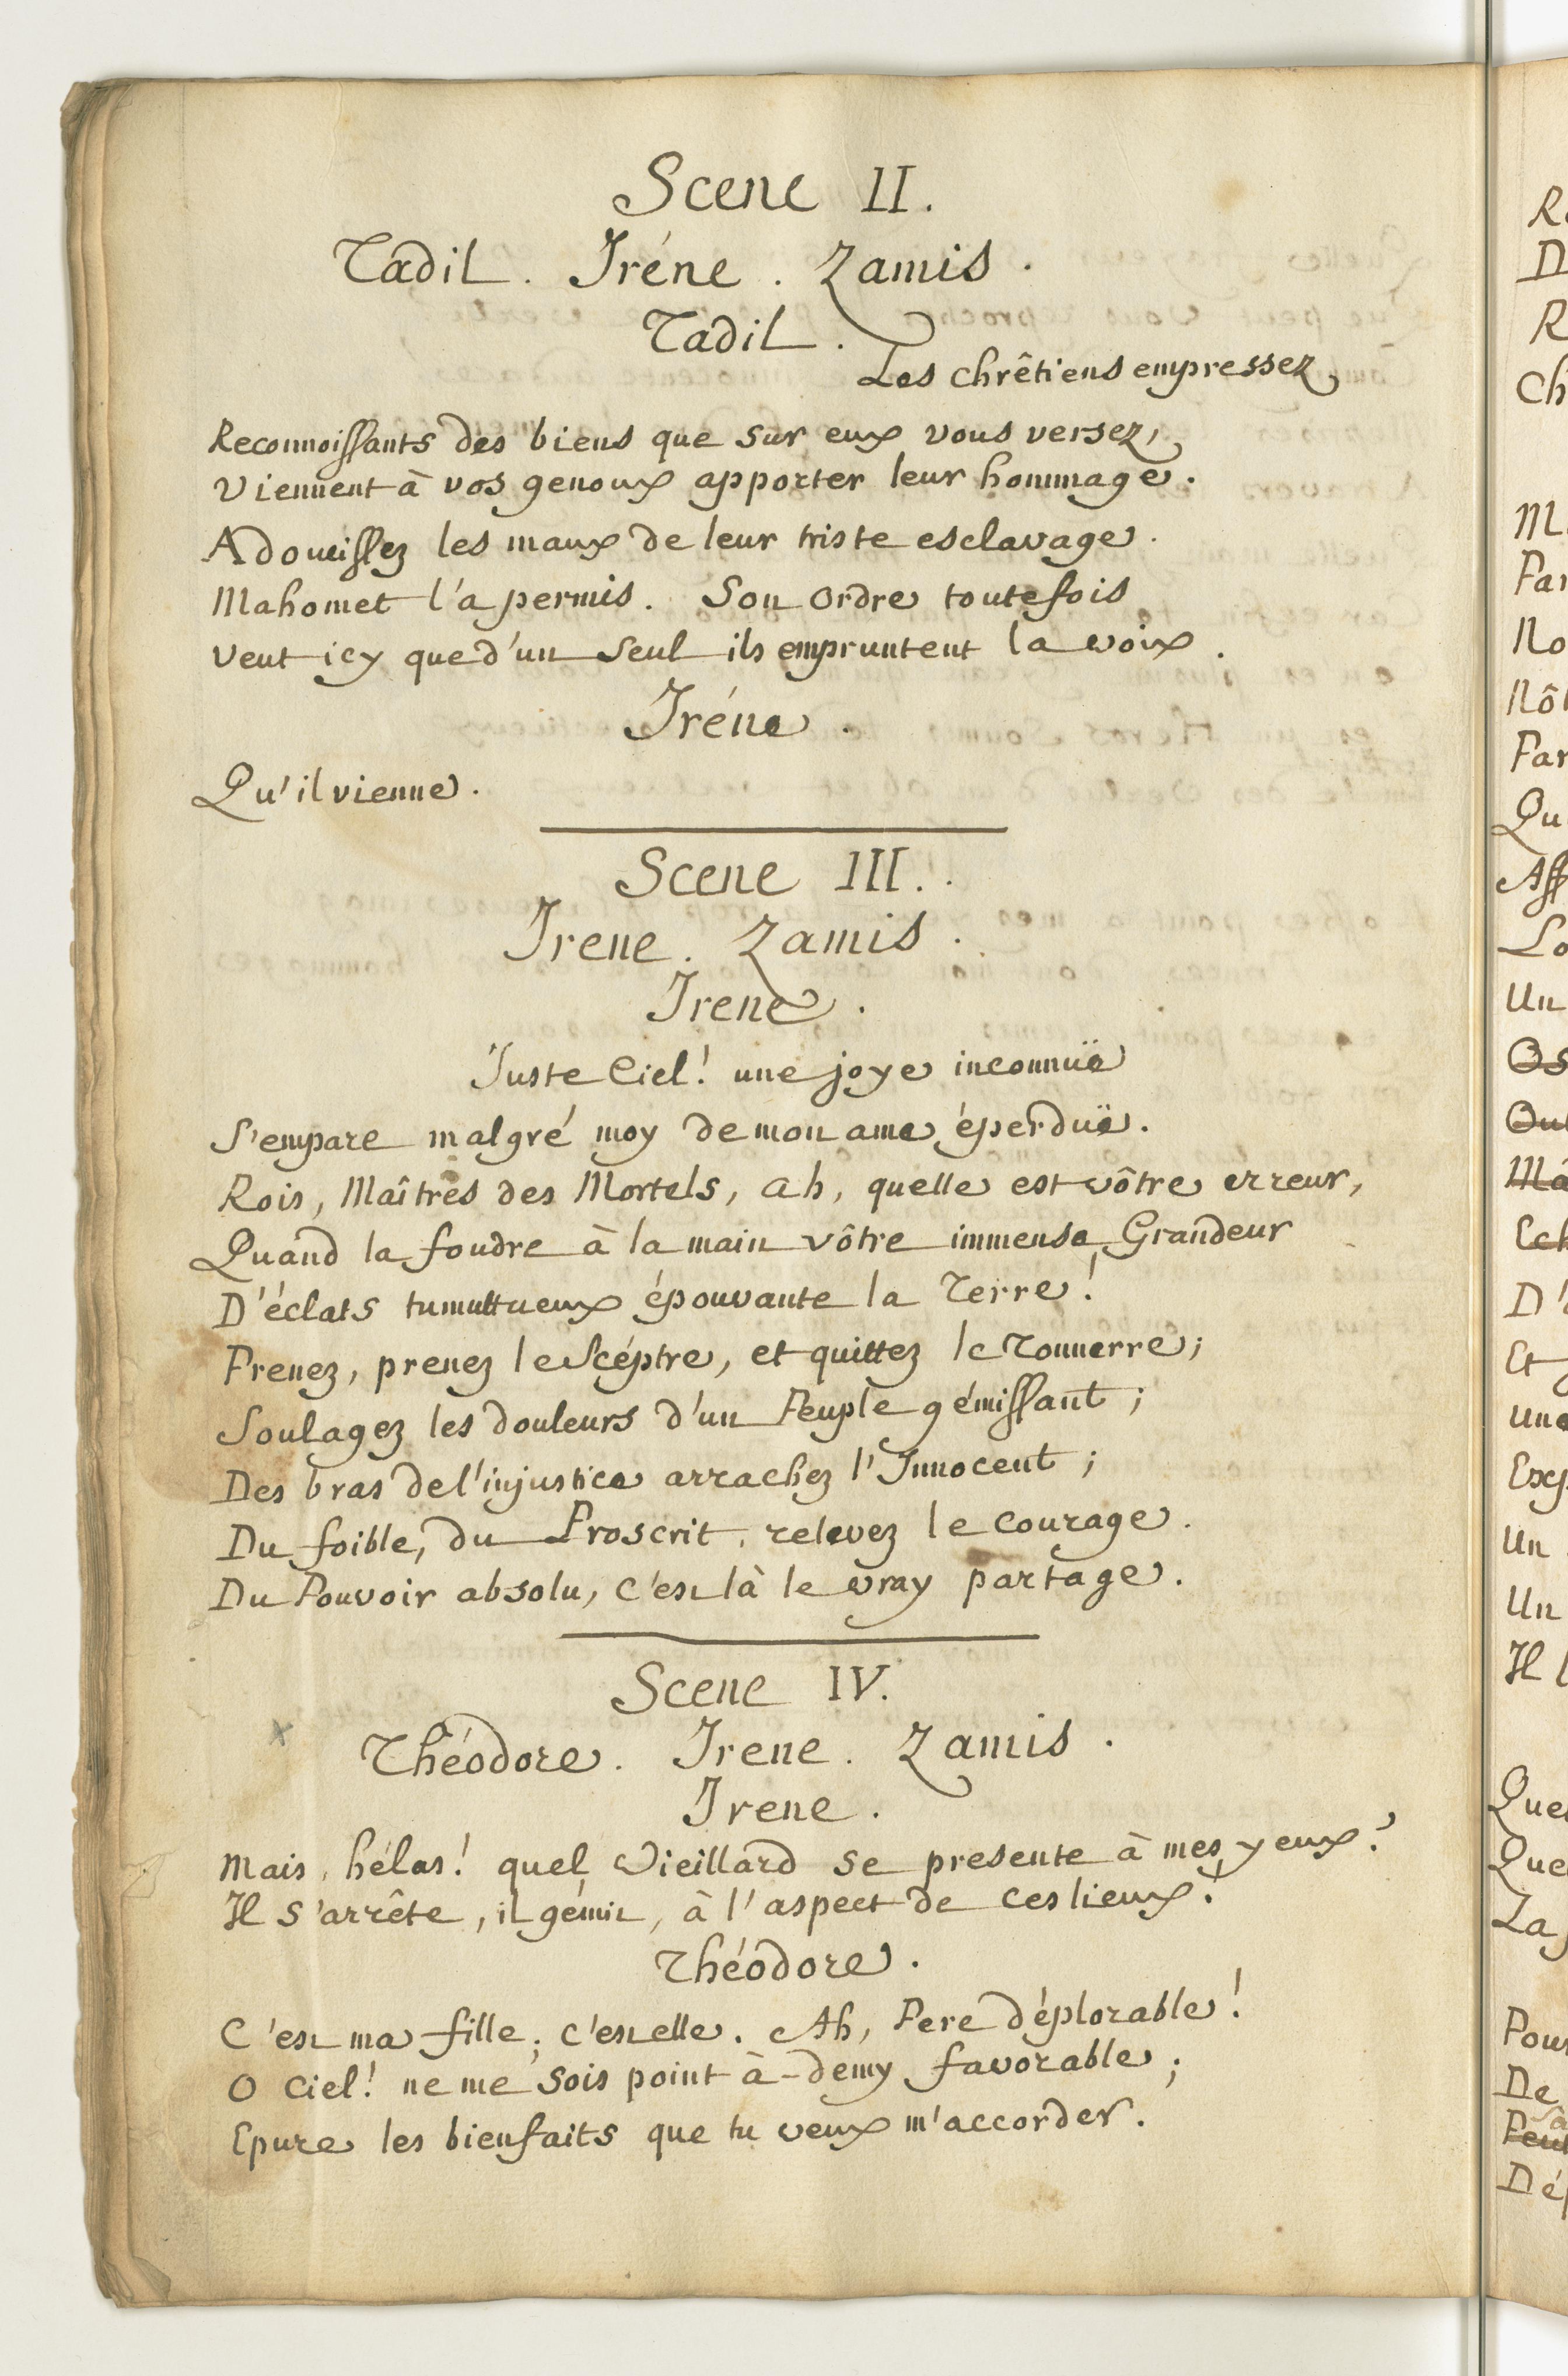 Scene II.
Tadil. Iréne. Zamis.
Tadil.
Les chrêtiens empressez
Reconnoissants des biens que sur eux vous versez,
Viennent à vos genoux apporter leur hommage.
Adoucissez les maux de leur triste esclavage.
Mahomet l'a permis. Son ordre toutefois
Veut icy que d'un seul ils empruntent la voix.
Iréne.
Qu'il vienne.
Scene III.
Irene. Zamis.
Irene.
Juste Ciel! une joye inconnuë
S'empare malgré moy de mon ame éperduë.
Rois, Maîtres des Mortels, ah, quelle est vôtre erreur,
Quand la foudre à la main vôtre immense Grandeur
D'éclats tumultueux épouvante la Terre!
Prenez, prenez le Scéptre, et quittez le Tonnerre;
Soulagez les douleurs d'un Peuple gémissant;
Des bras de l'injustice arrachez l'Innocent;
Du foible, du Proscrit, relevez le courage.
Du Pouvoir absolu, c'est là le vray partage.
Scene IV.
Théodore. Irene. Zamis.
Irene.
Mais, hélas! quel Vieillard se presente à mes yeux?
Il s'arrête, il gémit, à l'aspect de ces lieux!
Théodore.
C'est ma fille; c'est elle. Ah, Pere déplorable!
O Ciel! ne me sois point à-demy favorable;
Epure les bienfaits que tu veux m'accorder.